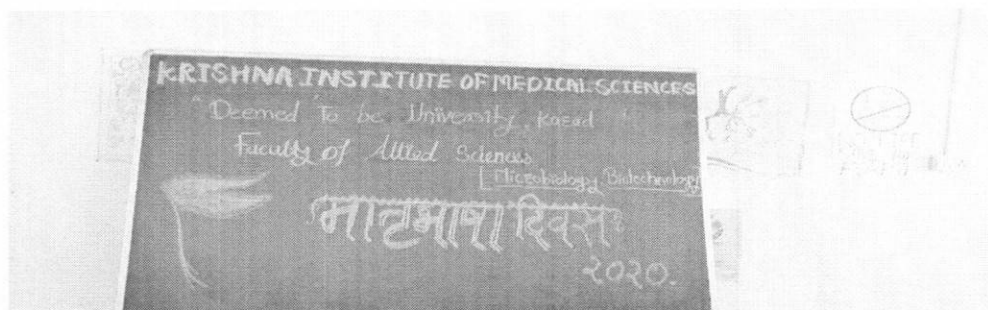 KRISHNA INSTITUTE OF MEDICAL SCIENCES
"Deemed To be University, Karad"
Faculty of Allied Sciences
[Microbiology, Biotechnology]
मातृभाषा दिवस
२०२०.